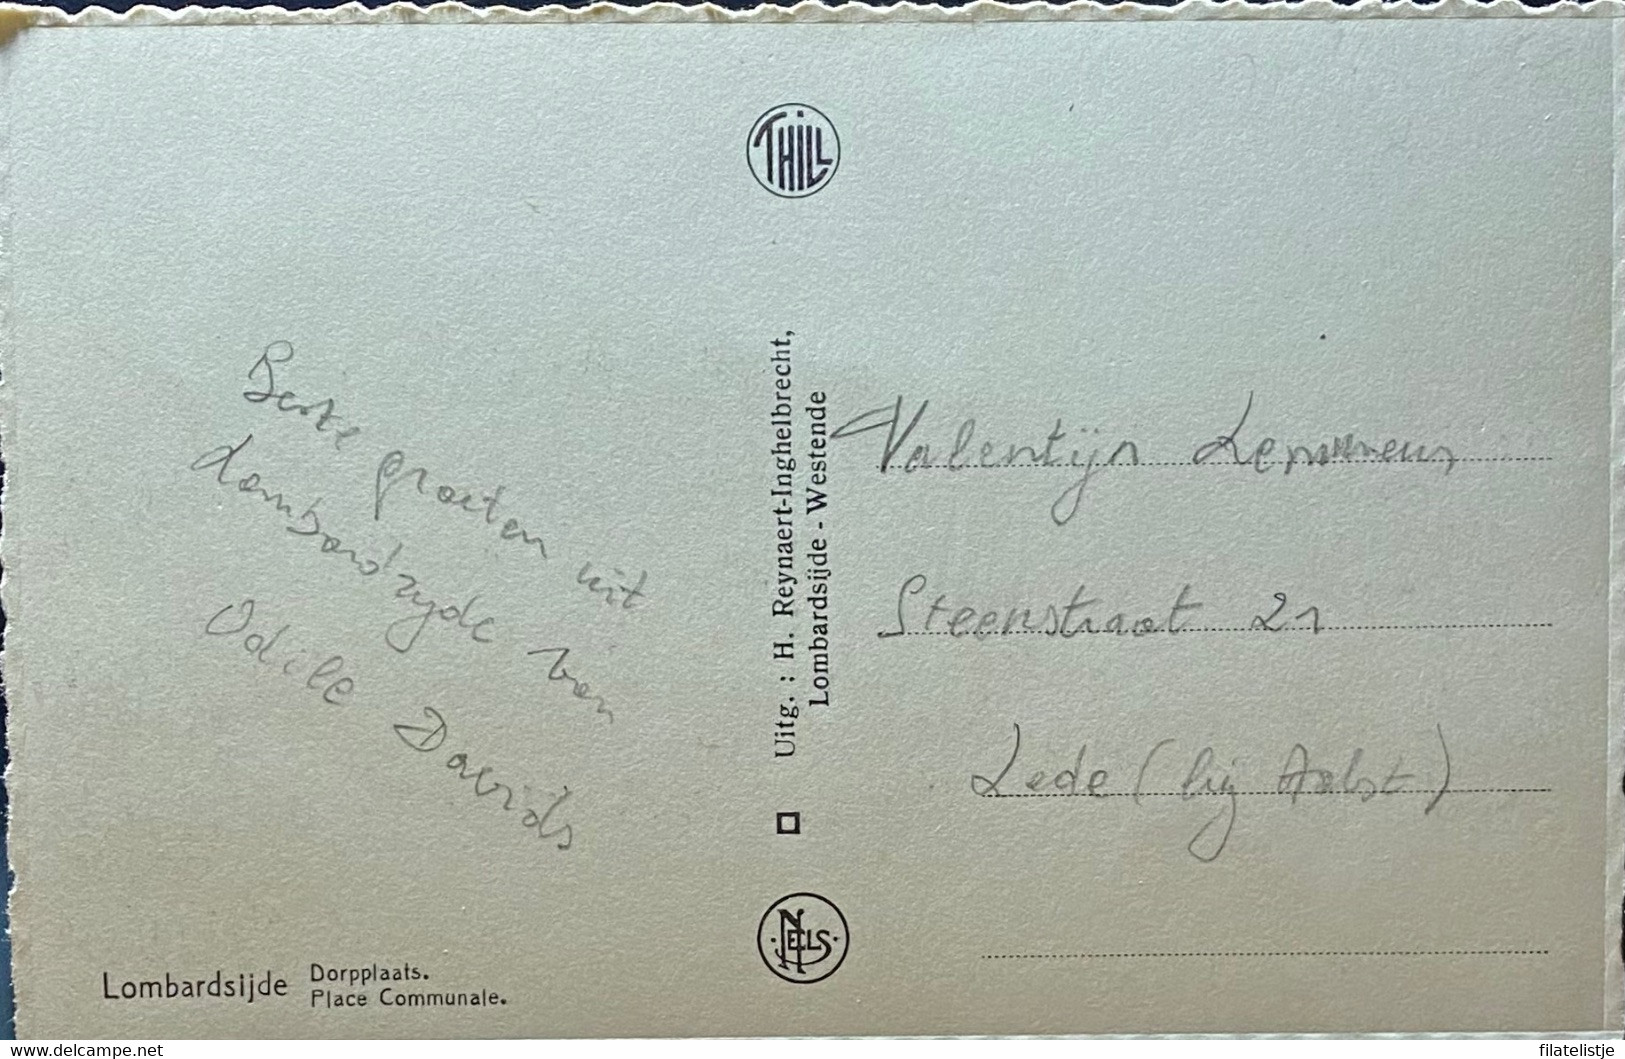 THILL
Beste groeten uit
Lombardzyde van
Odile Davids
Uitg. : H. Reynaert-Inghelbrecht,
Lombardsijde - Westende
Valentijn Lemmeur
Steenstraat 21
Lede (bij Aalst)
NELS
Lombardsijde
Dorpplaats.
Place Communale.
delcampe.net
filatelistje